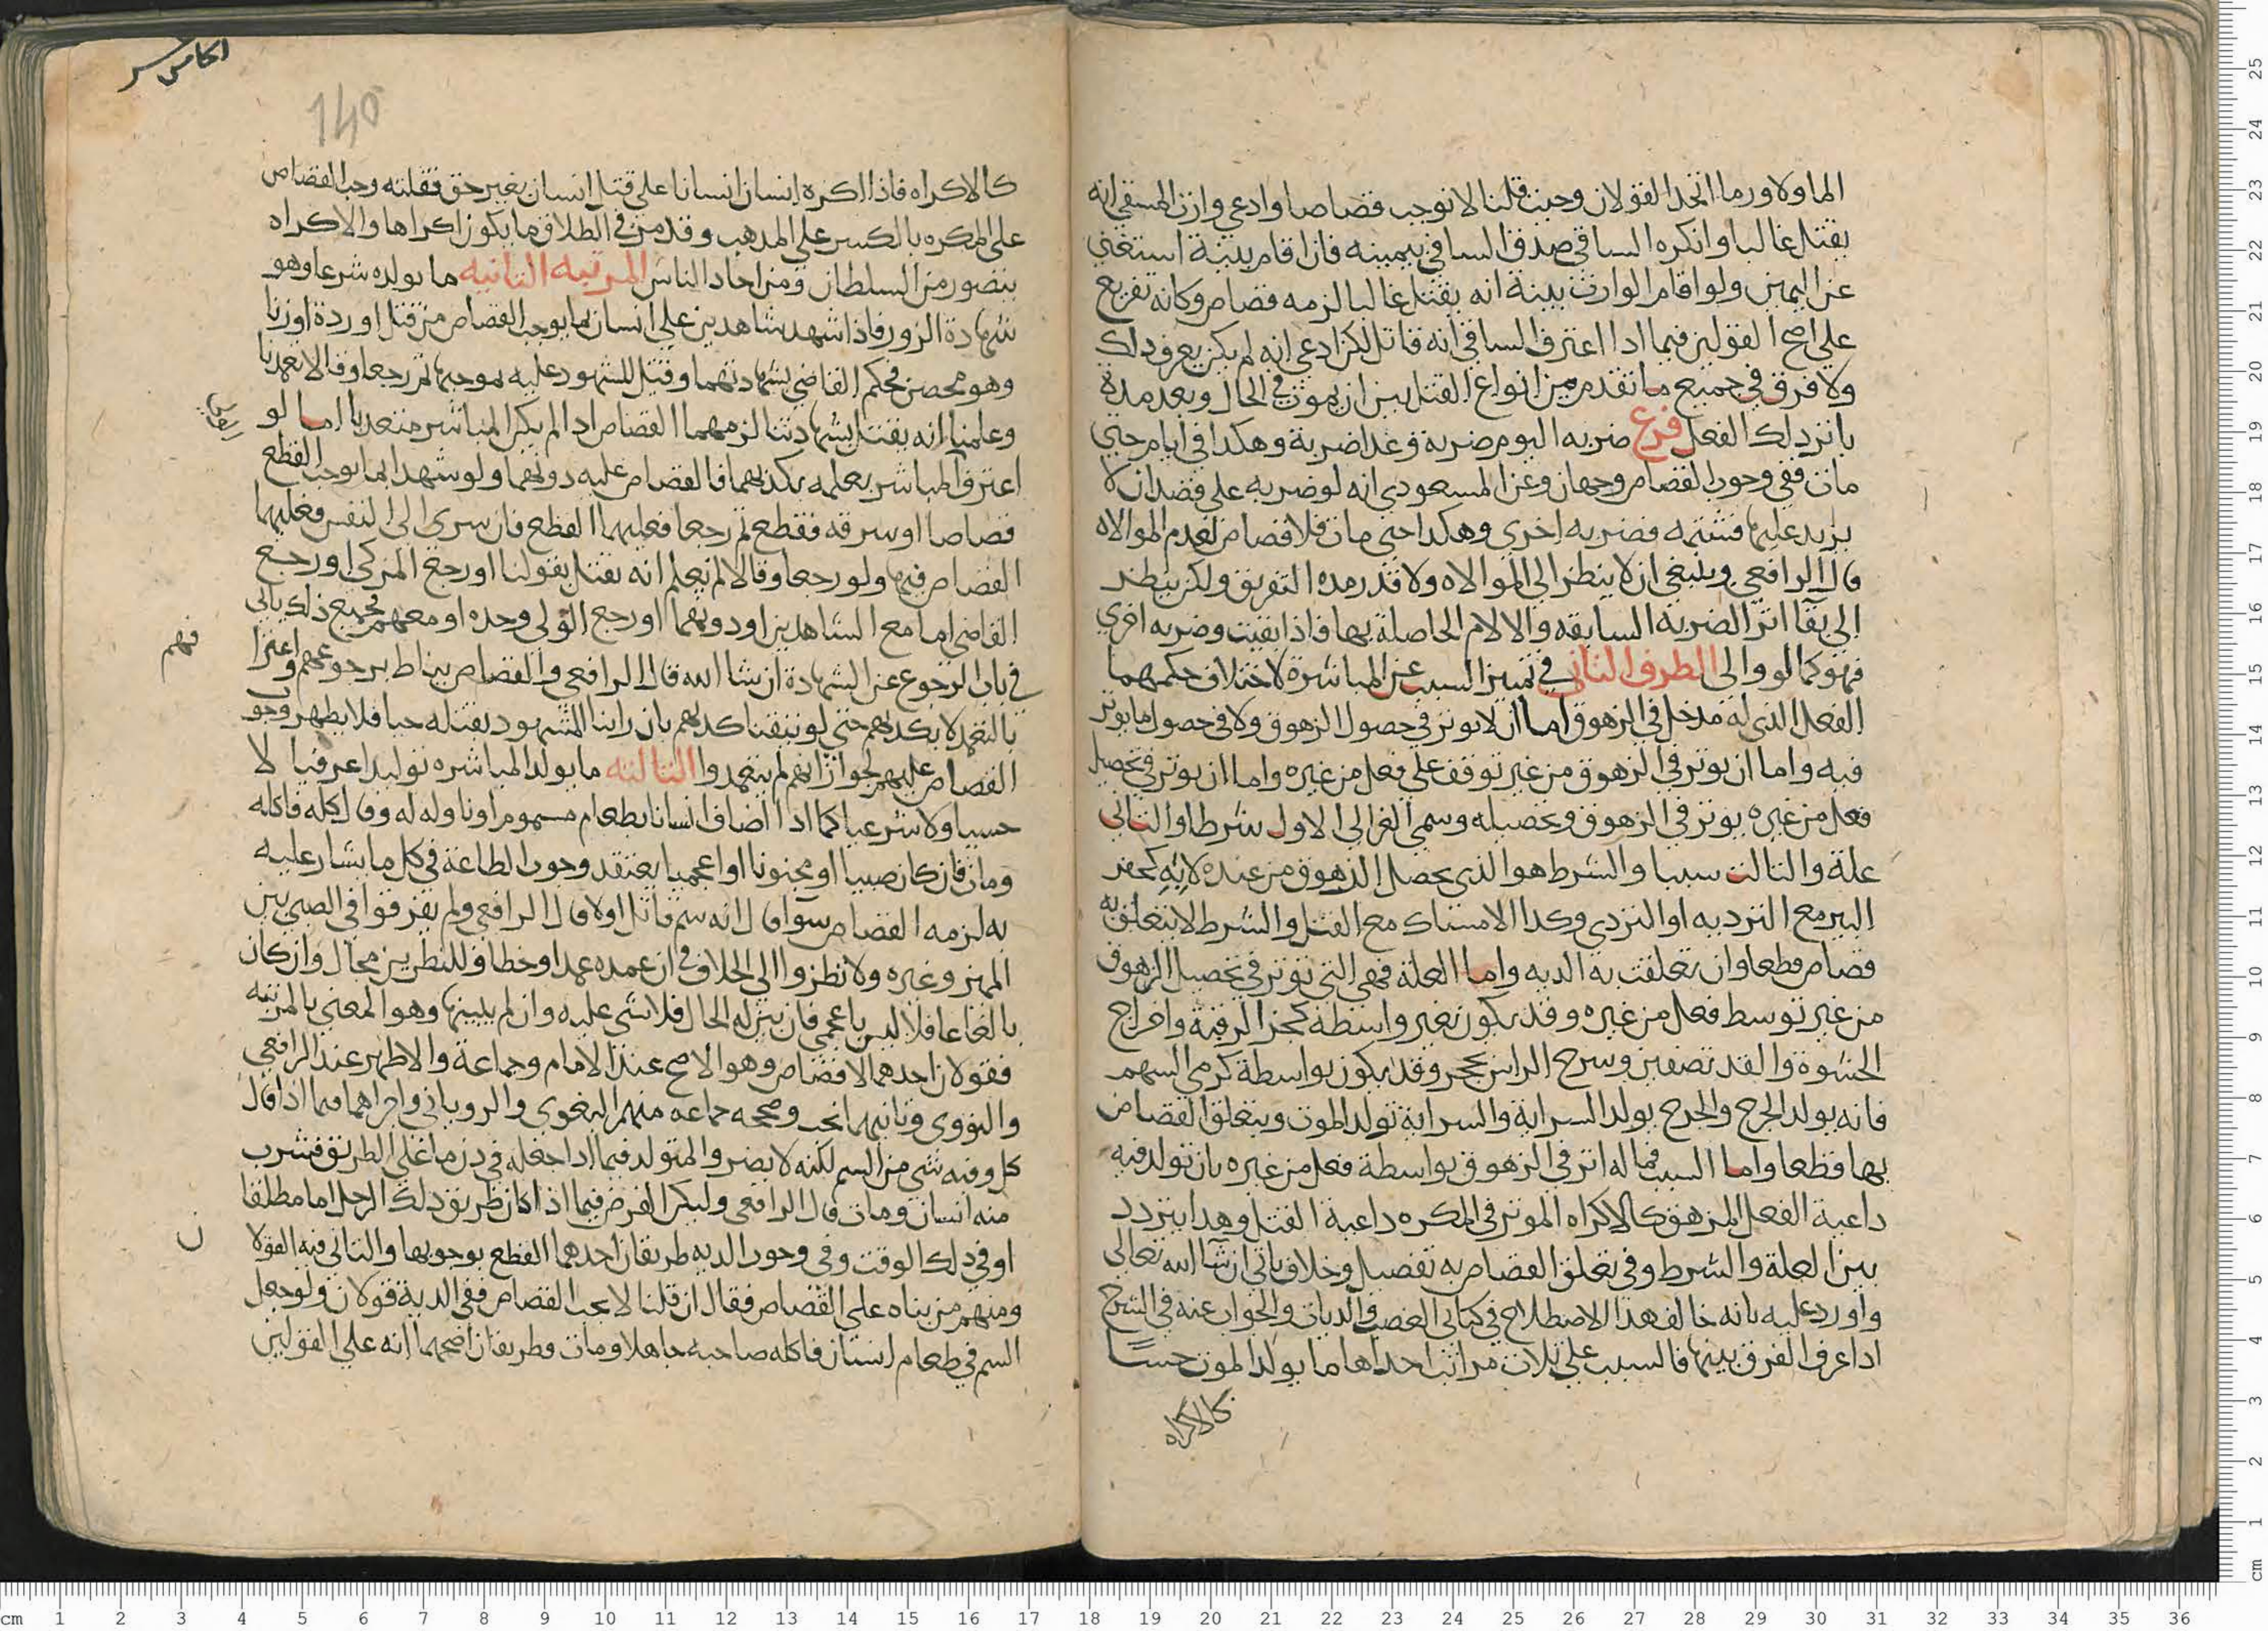 الماولا وربما اتحد القولان وحيث قلنا لا نوجب قصاصا وادعي وارث المسقي انه
يقتل غالبا وانكره الساقي صدق الساقي بيمينه فان اقام بينة استغني
عن اليمين ولو اقام الوارث بينة انه يقتل غالبا لزمه قصاص وكانه تفريع
علي اصح القولين فيما اذا اعترف الساقي انه قاتل لكن ادعي انه لم يكن يعرف ذلك
ولا فرق في جميع ما تقدم من انواع القتل بين ان يموت في الحال وبعد مدة
باثر ذلك الفعل فرع ضربه اليوم ضربة وغدا ضربة وهكذا في ايام حتي
مات ففي وجوب القصاص وجهان وعن المسعودي انه لو ضربه علي قصد ان لا
يزيد عليها فشتمه فضربه اخري وهكذا حتي مات فلا قصاص لعدم الموالاه
قال الرافعي وينبغي ان لا ينظر الي الموالاه ولا قدر مدة التفريق ولكن ينظر
الي بقا اثر الضربه السابقه والالام الحاصلة بها فاذا بقيت وضربه اخري
فهو كما لو والي الطرف الثاني في تمييز السبب عن المباشرة لاختلاف حكمهما
الفعل الذي له مدخل في الزهوق اما ان لا يوثر في حصول الزهوق ولا في حصول ما يوثر
فيه واما ان يوثر في الزهوق من غير توقف علي فعل من غيره واما ان يوثر في تحصيل
فعل من غيره يوثر في الزهوق وتحصيله وسمي الغزالي الاول شرطا والثاني
علة والثالث سببا والشرط هو الذي يحصل الزهوق من عنده لا به كحفر
البير مع التردية او التردي وكذا الامساك مع القتل والشرط لا يتعلق به
قصاص قطعا وان تعلقت به الدية واما العلة فهي التي توثر في تحصيل الزهوق
من غير توسط فعل من غيره وقد يكون بغير واسطة كحز الرقبة واخراج
الحشوة والقد نصفين وسدخ الراس بحجر وقد يكون بواسطة كرمي السهم
فانه يولد الجرح والجرح يولد السراية والسراية تولد الموت ويتعلق القصاص
بها قطعا واما السبب فما له اثر في الزهوق بواسطة فعل من غيره بان تولد فيه
داعية الفعل المزهق كالاكراه الموثر في المكره داعية القتل وهذا يتردد
بين العلة والشرط وفي تعلق القصاص به تفصيل وخلاف ياتي ان شا الله تعالي
واورد عليه بانه خالف هذا الاصطلاح في كتابي الغصب والديات والجواب عنه في الشرح
اذا عرف الفرق بينها فالسبب علي ثلاث مراتب احداها ما يولد الموت حسا
كالاكراه
140
كالاكراه فاذا اكره انسان انسانا علي قتل انسان بغير حق فقتله وجب القصاص
علي المكره بالكسر علي المذهب وقد مر في الطلاق ما يكون اكراها والاكراه
يتصور من السلطان ومن احاد الناس المرتبه الثانيه ما يولده شرعا وهو
شهادة الزور فاذا شهد شاهدين علي انسان بما يوجب القصاص من قتل او ردة او زنا
وهو محصن فحكم القاضي بشهادتهما وقتل المشهود عليه بموجبها ثم رجعا وقالا تعمدنا
وعلمنا انه يقتل بشهادتنا لزمهما القصاص اذا لم يكن المباشر متعديا اما لو
اعترف المباشر بعلمه بكذبهما فالقصاص عليه دونهما ولو شهدا بما يوجب القطع
قصاصا او سرقه فقطع ثم رجعا فعليهما القطع فان سري الي النفس فعليهما
القصاص فيها ولو رجعا وقالا لم نعلم انه يقتل بقولنا او رجع المزكي او رجع
القاضي اما مع الشاهدين او دونهما او رجع الولي وحده او معهم فجميع ذلك ياتي
في باب الرجوع عن الشهادة ان شا الله قال الرافعي والقصاص يناط برجوعهم واعترا
فهم
بالتعمد لا بكذبهم حتي لو تيقنا كذبهم بان راينا المشهود بقتله حيا فلا يظهر وجوب
القصاص عليهم لجواز انهم لم يتعمدوا الثالثه ما يولد المباشره توليدا عرفيا لا
حسيا ولا شرعيا كما اذا اضاف انسانا بطعام مسموم او ناوله له وقال كله فاكله
ومات فان كان صبيا او مجنونا او اعجميا يعتقد وجوب الطاعة في كل ما يشار عليه
به لزمه القصاص سوا قال انه سم قاتل اولا قال الرافعي ولم يفرقوا في الصبي بين
المميز وغيره ولا نظروا الي الخلاف في ان عمده عمد او خطا وللنظر فيه مجال وان كان
بالغا عاقلا ليس باعجمي فان بين له الحال فلا شي عليه وان لم يبينها وهو المعني بالمرتبه
فقولان احدهما لا قصاص وهو الاصح عند الامام وجماعة والاظهر عند الرافعي
والنووي وثانيهما يجب وصححه جماعه منهم البغوي والروياني واجراهما فيما اذا قال
كل وفيه شي من السم لكنه لا يضر والمتولد فيما اذا جعله في دن ما علي الطريق فشرب
منه انسان ومات قال الرافعي وليكن الفرض فيما اذا كان طريق ذلك الرجل اما مطلقا
او في ذلك الوقت وفي وجوب الديه طريقان احدهما القطع بوجوبها والثاني فيه القولا
ن
ومنهم من بناه علي القصاص فقال ان قلنا لا يجب القصاص ففي الدية قولان ولو جعل
السم في طعام انسان فاكله صاحبه جاهلا ومات فطريقان اصحهما انه علي القولين